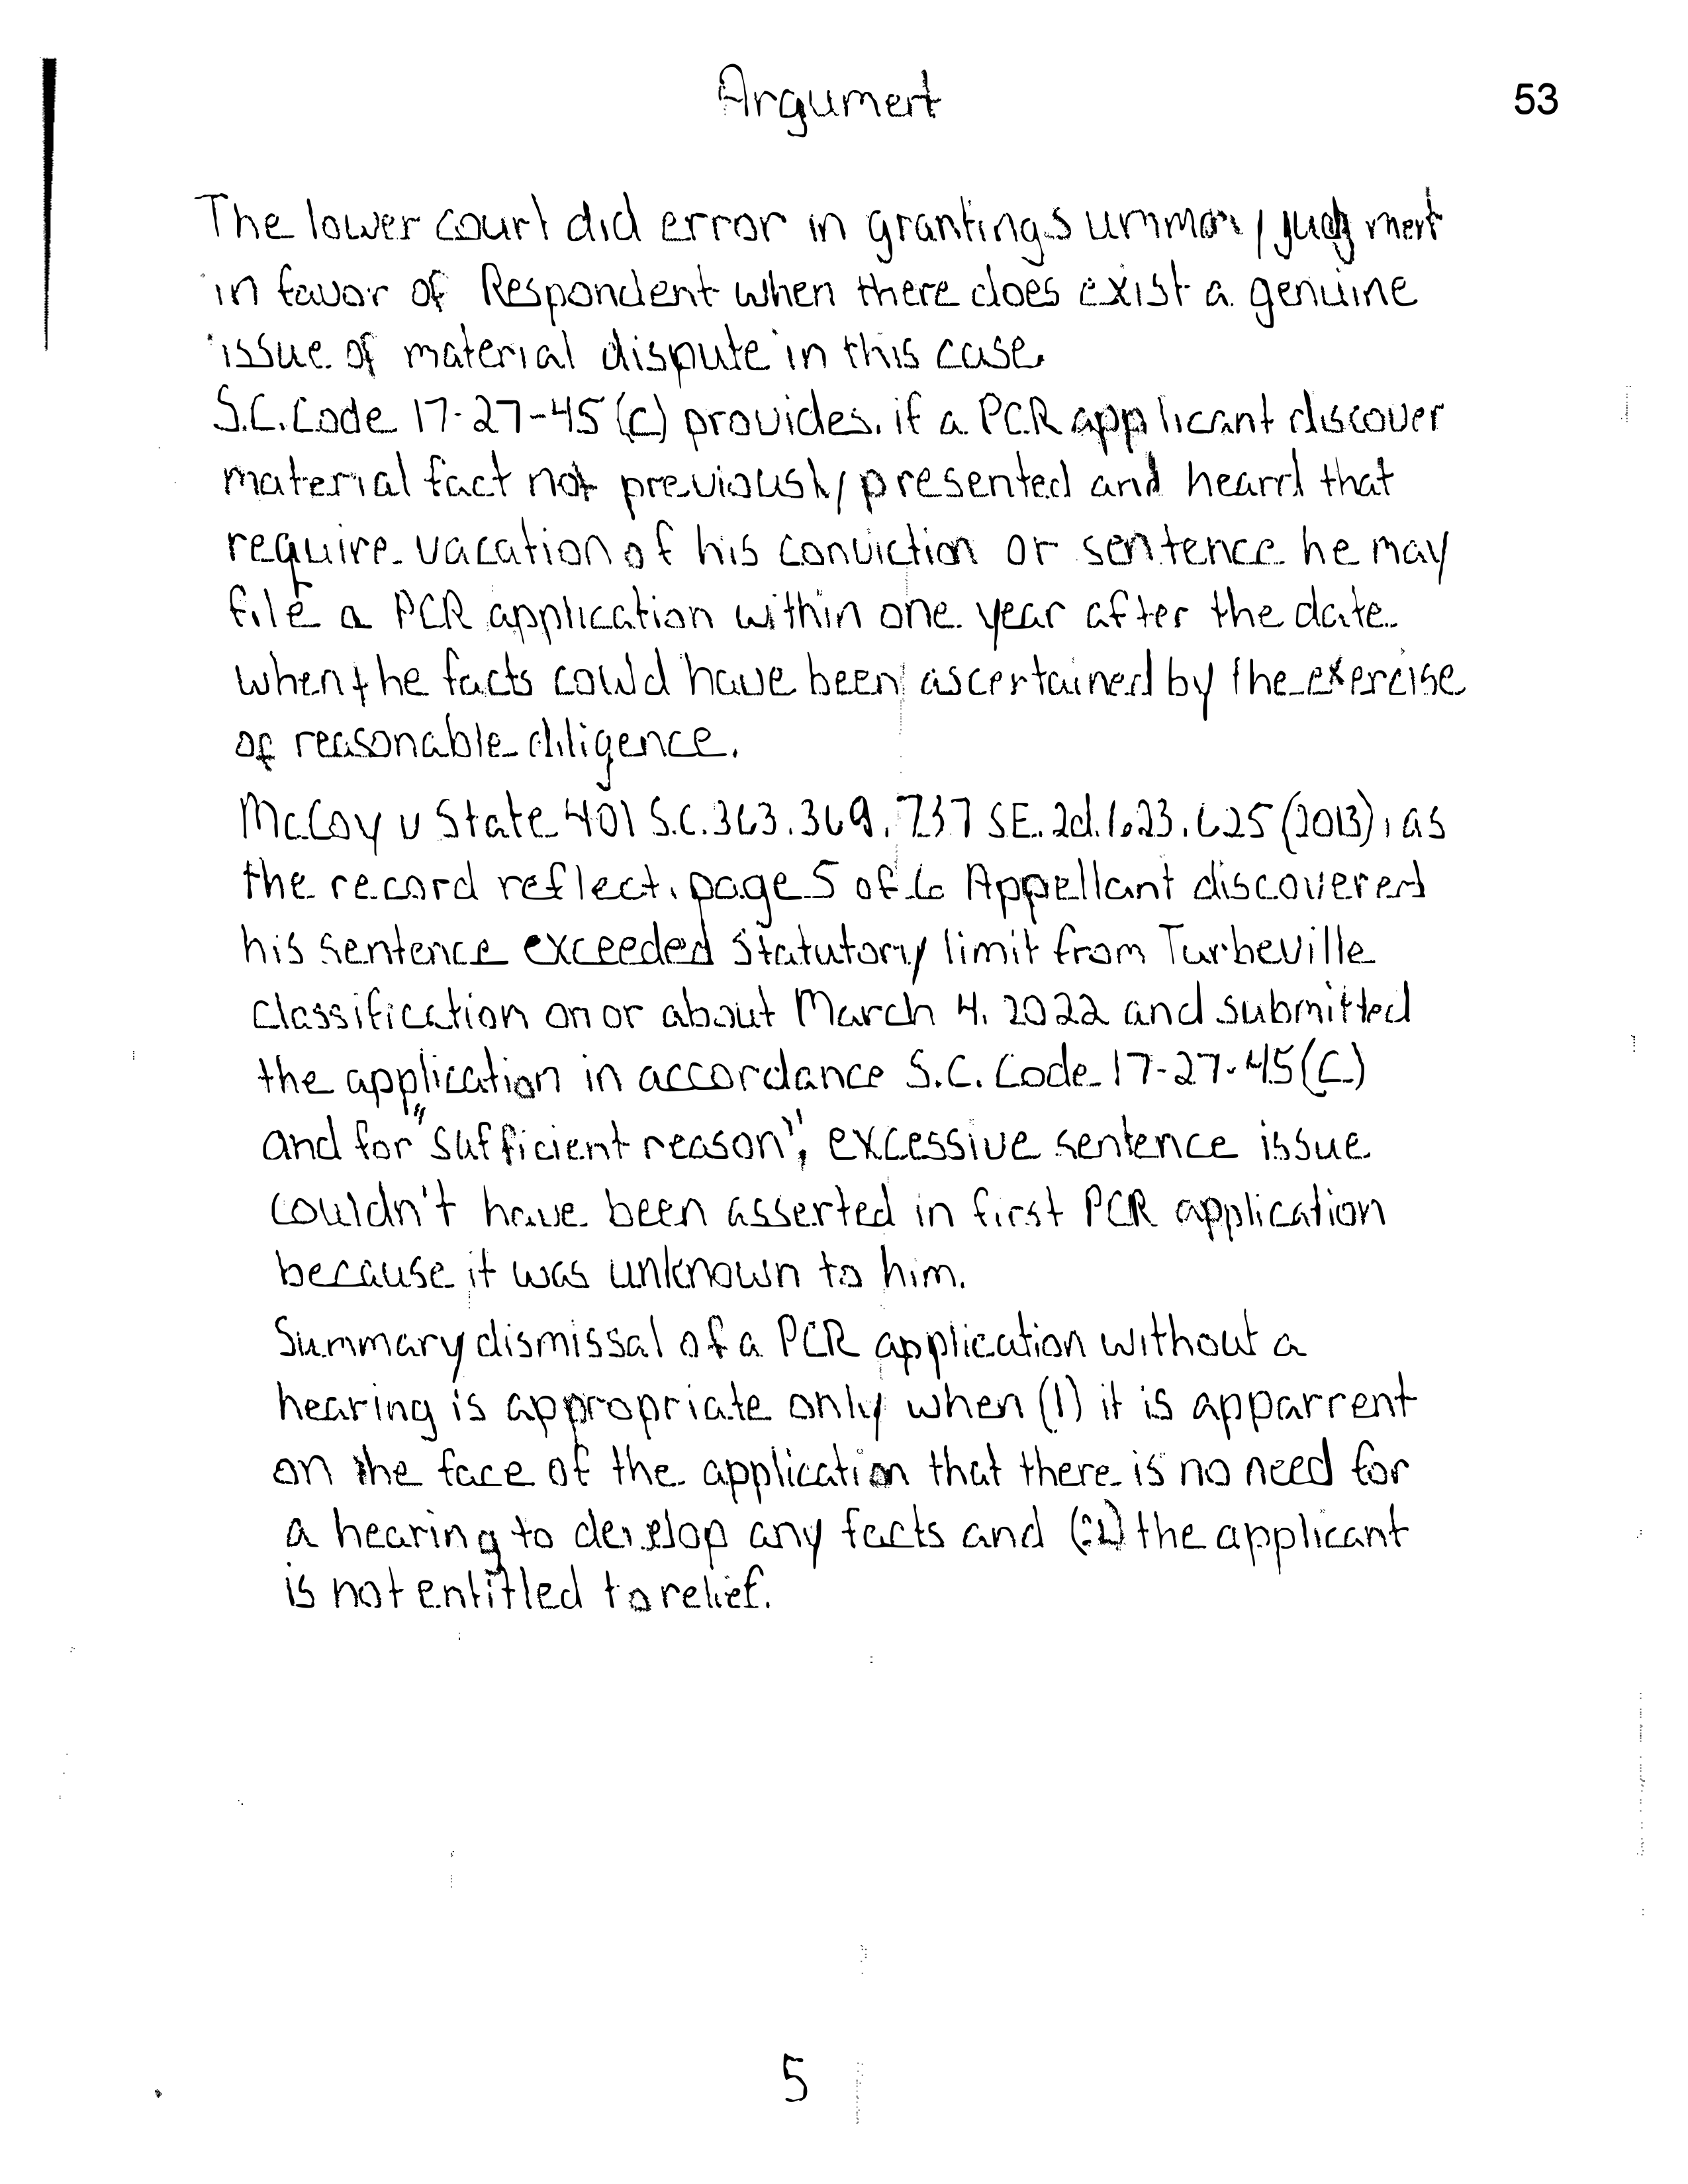 Argument
53
The lower court did error in granting summary judgment
in favor of Respondent when there does exist a genuine
issue of material dispute in this case.
S.C. Code 17-27-45(C) provides, if a PCR applicant discover
material fact not previously presented and heard that
require vacation of his conviction or sentence he may
file a PCR application within one year after the date
when the facts could have been ascertained by the exercise
of reasonable diligence.
McCoy v State 401 S.C. 363, 369, 737 SE. 2d. 623, 625 (2013), as
the record reflect, page 5 of 6 Appellant discovered
his sentence exceeded statutory limit from Turbeville
Classification on or about March 4, 2022 and submitted
the application in accordance S.C. Code 17-27-45(C)
and for "sufficient reason", excessive sentence issue
couldn't have been asserted in first PCR application
because it was unknown to him.
Summary dismissal of a PCR application without a
hearing is appropriate only when (1) it is apparrent
on the face of the application that there is no need for
a hearing to develop any facts and (2) the applicant
is not entitled to relief.
5